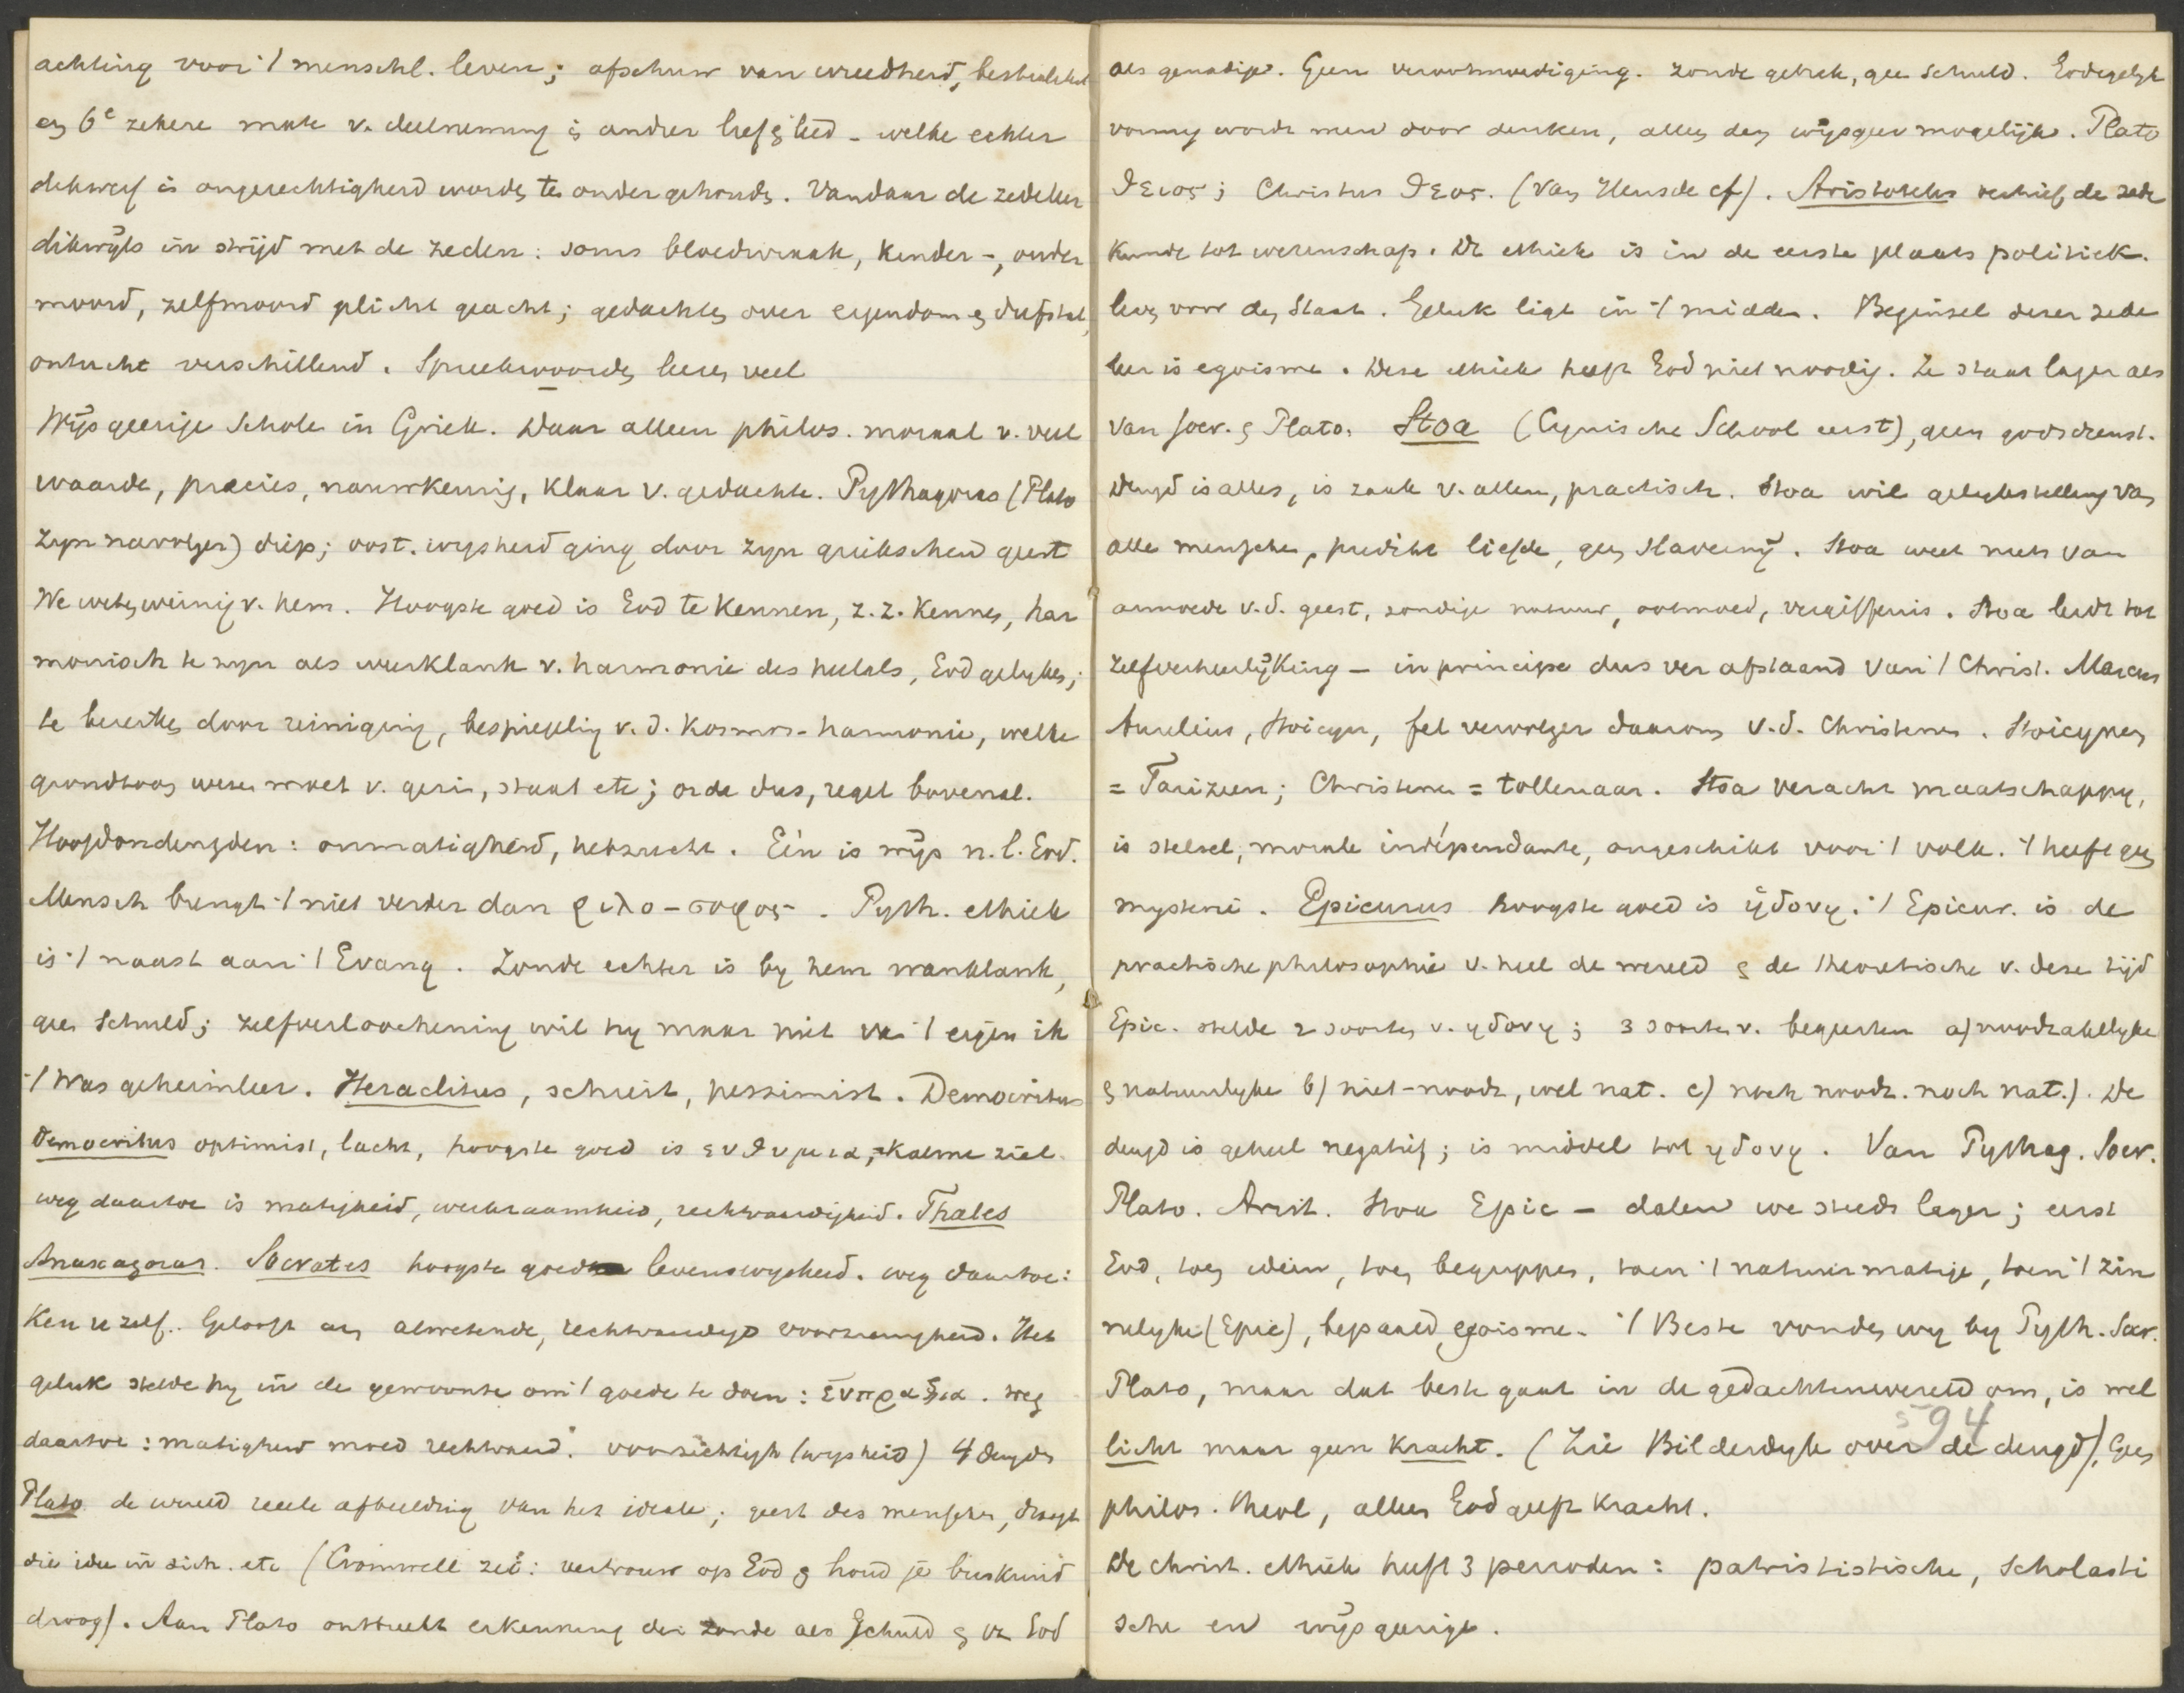 achting voor 't menschl. leven; afschuw van wreedheid, bestialiteit
en 6e zekere mate v. deelneming in anders lief & leed - welke echter
dikwerf in ongerechtigheid worden ten onder gehouden. Vandaar de zedeleer
dikwijls in strijd met de zeden: soms bloedwraak, kinder-, ouder
moord, zelfmoord plicht geacht; gedachten over eigendom & diefstal,
ontucht verschillend. Spreekwoorden leeren veel
Wijsgeerige Schole in Griek. Daar alleen philos. moraal v. veel
waarde, precies, nauwkeurig, klaar v. gedachte. Pythagoras (Plato
zijn navolger) diep; oost. wysheid ging door zyn griekschen geest
We weten weinig v. hem. Hoogste goed is God te kennen, z.z. kennen, har
monisch te zyn als weerklank v. harmonie des heelals, God gelyken;
te bereiken door reiniging, bespiegeling v. d. Kosmos-harmonie, welke
grondtoon wezen moet v. gezin, staat etc; orde dus, regel bovenal.
Hoofdondeugden: onmatigheid, hebzucht. Eén is wijs n.l. God.
Mensch brengt 't niet verder dan φιλο-σοφος. Pyth. ethiek
is 't naast aan 't Evang. Zonde echter is by hem wanklank,
geen schuld; zelfverloochening wil hy maar niet van 't eigen ik
't Was geheimleer. Heraclitus, schreit, pessimist. Democritus
Democritus optimist, lacht, hoogste goed is ευθυμια, = kalme ziel.
weg daartoe is matigheid, werkzaamheid, rechtvaardigheid. Thales
Anaxagoras. Socrates hoogste goed levenswysheid. weg daartoe:
Ken u zelf. Gelooft aan alwetende, rechtvaardige voorzienigheid. Het
geluk stelde hy in de gewoonte om 't goede te doen: ευπραξια. weg
daartoe: matigheid moed rechtvaard. voorzichtigh (wysheid) 4 deugden
Plato de wereld reele afbeelding van het ideale; geest des menschen, draagt
die idee in zich. etc (Cromwell zei: vertrouw op God & houd je buskruid
droog). Aan Plato ontbreekt erkenning der zonde als Schuld & v. God
als genadige. Geen verootmoediging. zonde gebrek, geen schuld. Godegelyk
vormig wordt men door denken, alleen den wijsgeer mogelijk. Plato
θειος; Christus θεος. (Van Heusde cf). Aristoteles verhief de zede
kunde tot wetenschap. De ethiek is in de eerste plaats politiek.
leven voor den Staat. Geluk ligt in 't midden. Beginsel dezer zede
leer is egoisme. Deze ethiek heeft God niet noodig. Ze staat lager als
van Socr. & Plato. Stoa (Cynische School eerst), geen godsdienst.
Deugd is alles, is zaak v. allen, practisch. Stoa wil gelykstelling van
alle menschen, predikt liefde, geen slavernij. Stoa weet niets van
armoede v. d. geest, zondige natuur, ootmoed, vergiffenis. Stoa leidt tot
zelfverheerlijking - in principe dus ver afstaand van 't Christ. Marcus
Aurelius, Stoicyn, fel vervolger daarom v. d. Christenen. Stoicynen
= Farizeen; Christenen = tollenaar. Stoa veracht maatschappy,
is stelsel, morale indépendante, ongeschikt voor 't volk. 't heeft geen
mysterie. Epicurus hoogste goed is ηδονη. 't Epicur. is de
practische philosophie v. heel de wereld & de theoretische v. deze tijd
Epic. stelde 2 soorten v. ηδονη; 3 soorten v. begeerten a) noodzakelyke
& natuurlyke b) niet-noodz, wel nat. c) noch noodz. noch nat.). De
deugd is geheel negatief; is middel tot ηδονη. Van Pythag. Socr.
Plato. Arist. Stoa Epic - dalen we steeds lager; eerst
God, toen ideën, toen begrippen, toen 't natuurmatige, toen 't zin
nelyke (Epic), bepaald egoisme. 't Beste vonden wy by Pyth. Socr.
Plato, maar dat beste gaat in de gedachtenwereld om, is wel
licht maar geen kracht. (Zie Bilderdyk over de deugd). Geen
philos. theol, alleen God geeft kracht.
594
De christ. ethiek heeft 3 perioden: patrististische, Scholasti
sche en wijsgeerige.